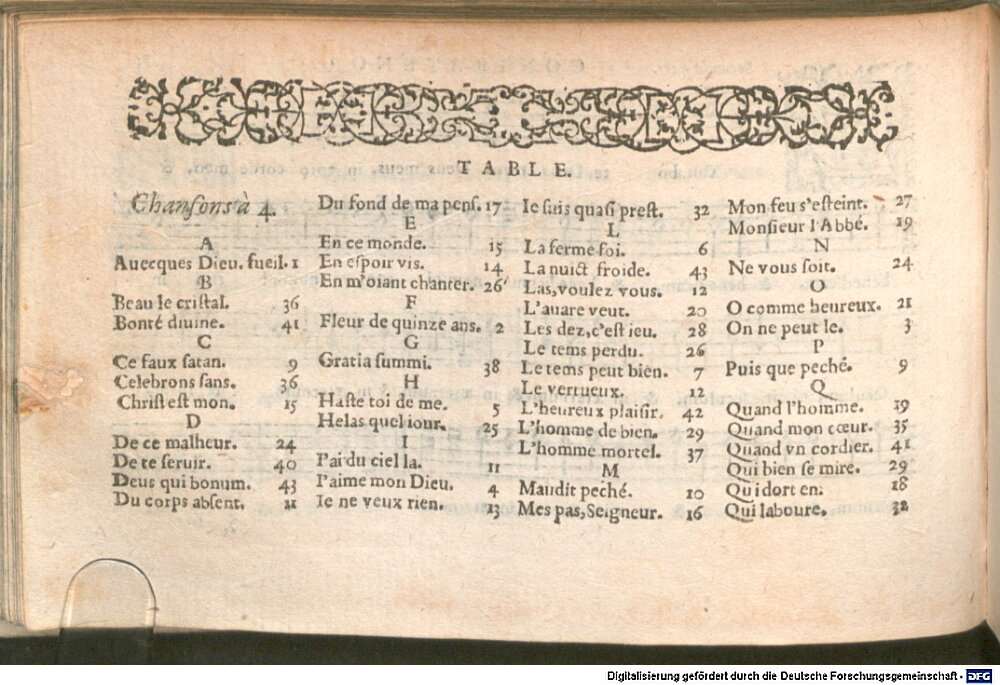 TABLE.
Chansons à 4.
A
Auecques Dieu. fueil. 1
B
Beau le cristal. 36
Bonté diuine. 41
C
Ce faux satan. 9
Celebrons sans. 36
Christ est mon. 15
D
De ce malheur. 24
De te seruir. 40
Deus qui bonum. 43
Du corps absent. 11
Du fond de ma pens. 17
E
En ce monde. 15
En espoir vis. 14
En m'oiant chanter. 26
F
Fleur de quinze ans. 2
G
Gratia summi. 38
H
Haste toi de me. 5
Helas quel iour. 25
I
I'ai du ciel la. 11
I'aime mon Dieu. 4
Ie ne veux rien. 13
Ie suis quasi prest. 32
L
La ferme foi. 6
La nuict froide. 43
Las, voulez vous. 12
L'auare veut. 20
Les dez, c'est ieu. 28
Le tems perdu. 26
Le tems peut bien. 7
Le verrueux. 12
L'heureux plaisir. 42
L'homme de bien. 29
L'homme mortel. 37
M
Maudit peché. 10
Mes pas, Seigneur. 16
Mon feu s'esteint. 27
Monsieur l'Abbé. 19
N
Ne vous soit. 24
O
O comme heureux. 21
On ne peut le. 3
P
Puis que peché. 9
Q
Quand l'homme. 19
Quand mon cœur. 35
Quand vn cordier. 41
Qui bien se mire. 29
Qui dort en. 18
Qui laboure. 32
Digitalisierung gefördert durch die Deutsche Forschungsgemeinschaft - DFG